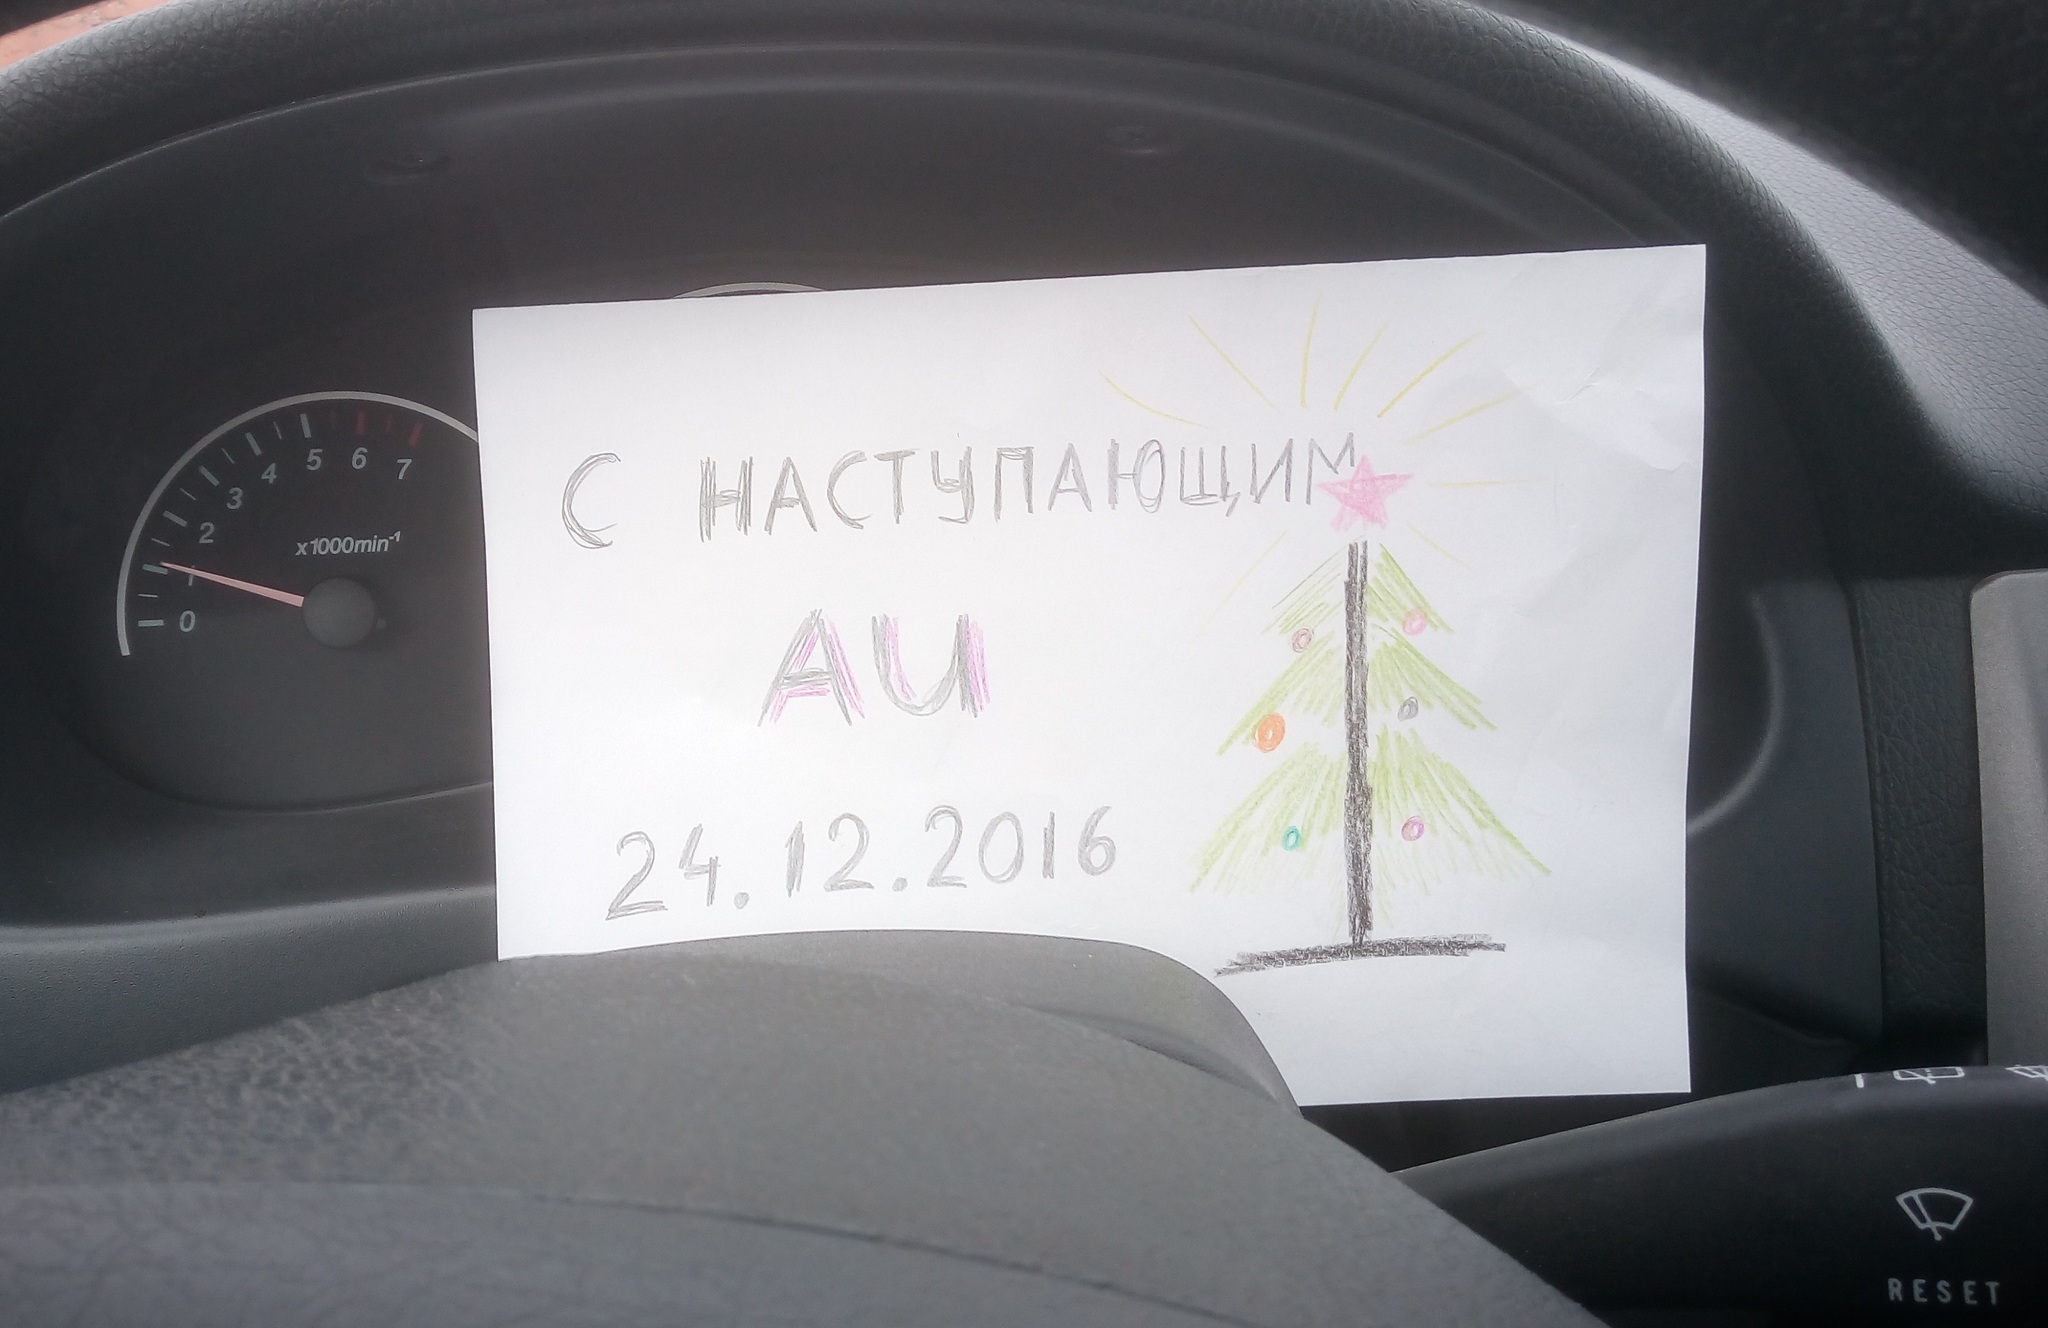 7
6
5
4
3
2
1
0
x1000min⁻¹
С НАСТУПАЮЩИМ
AU
24.12.2016
RESET